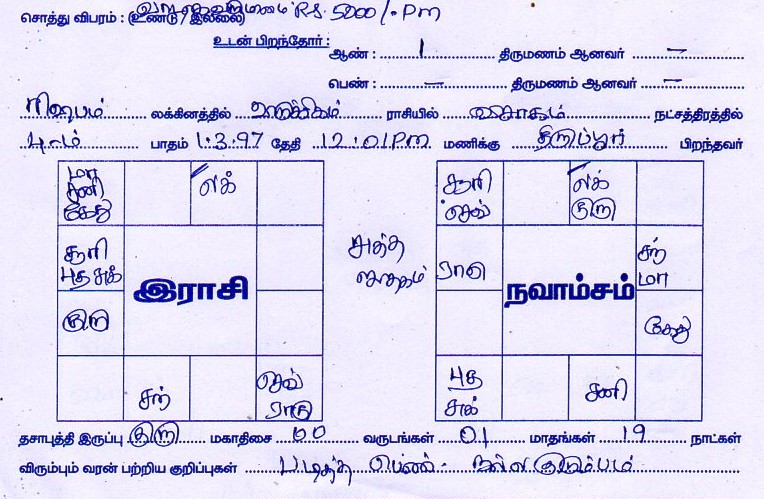 சொத்து விபரம் : (உண்டு / இல்லை) RS. 5000/. Pm
உடன் பிறந்தோர் :
ஆண் : 1 திருமணம் ஆனவர் —
பெண் : — திருமணம் ஆனவர் —
ரிஷபம் லக்கினத்தில் விருச்சிகம் ராசியில் விசாகம் நட்சத்திரத்தில்
4-ம் பாதம் 1.3.97 தேதி 12.01 Pm மணிக்கு திருப்பூர் பிறந்தவர்
மா சனி கேது லக்
சூரி புத சுக்
குரு
இராசி
சந் செவ் ராகு
சூரி செவ் லக் குரு
ராகு சந் மா
நவாம்சம்
கேது
புத சுக் சனி
தசாபுத்தி இருப்பு குரு மகாதிசை 00 வருடங்கள் 01 மாதங்கள் 19 நாட்கள்
விரும்பும் வரன் பற்றிய குறிப்புகள் படித்த பெண் - நல்ல குடும்பம்